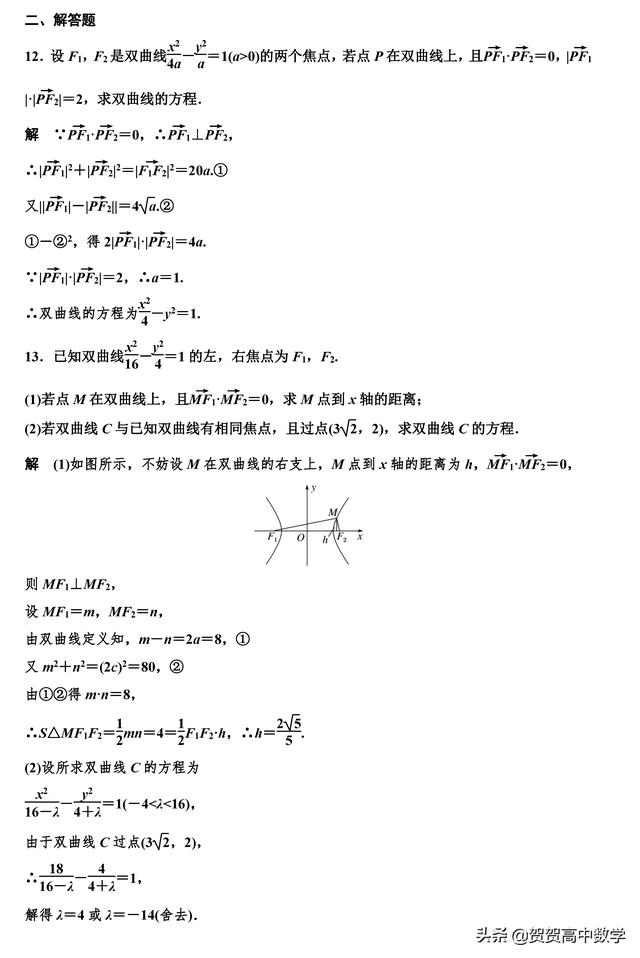 二、解答题
12．设 F₁，F₂ 是双曲线x²/4a－y²/a＝1(a>0)的两个焦点，若点 P 在双曲线上，且PF₁→·PF₂→＝0，|PF₁→
|·|PF₂→|＝2，求双曲线的方程．
解　∵PF₁→·PF₂→＝0，∴PF₁→⊥PF₂→，
∴|PF₁→|²＋|PF₂→|²＝|F₁F₂→|²＝20a.①
又||PF₁→|－|PF₂→||＝4√a.②
①－②²，得 2|PF₁→|·|PF₂→|＝4a.
∵|PF₁→|·|PF₂→|＝2，∴a＝1.
∴双曲线的方程为x²/4－y²＝1.
13．已知双曲线x²/16－y²/4＝1 的左，右焦点为 F₁，F₂.
(1)若点 M 在双曲线上，且MF₁→·MF₂→＝0，求 M 点到 x 轴的距离；
(2)若双曲线 C 与已知双曲线有相同焦点，且过点(3√2，2)，求双曲线 C 的方程．
解　(1)如图所示，不妨设 M 在双曲线的右支上，M 点到 x 轴的距离为 h，MF₁→·MF₂→＝0，
y
M
F₁ O h F₂ x
则 MF₁⊥MF₂，
设 MF₁＝m，MF₂＝n，
由双曲线定义知，m－n＝2a＝8，①
又 m²＋n²＝(2c)²＝80，②
由①②得 m·n＝8，
∴S△MF₁F₂＝1/2mn＝4＝1/2F₁F₂·h，∴h＝2√5/5.
(2)设所求双曲线 C 的方程为
x²/16－λ－y²/4＋λ＝1(－4<λ<16)，
由于双曲线 C 过点(3√2，2)，
∴18/16－λ－4/4＋λ＝1，
解得 λ＝4 或 λ＝－14(舍去)．
头条 @贺贺高中数学